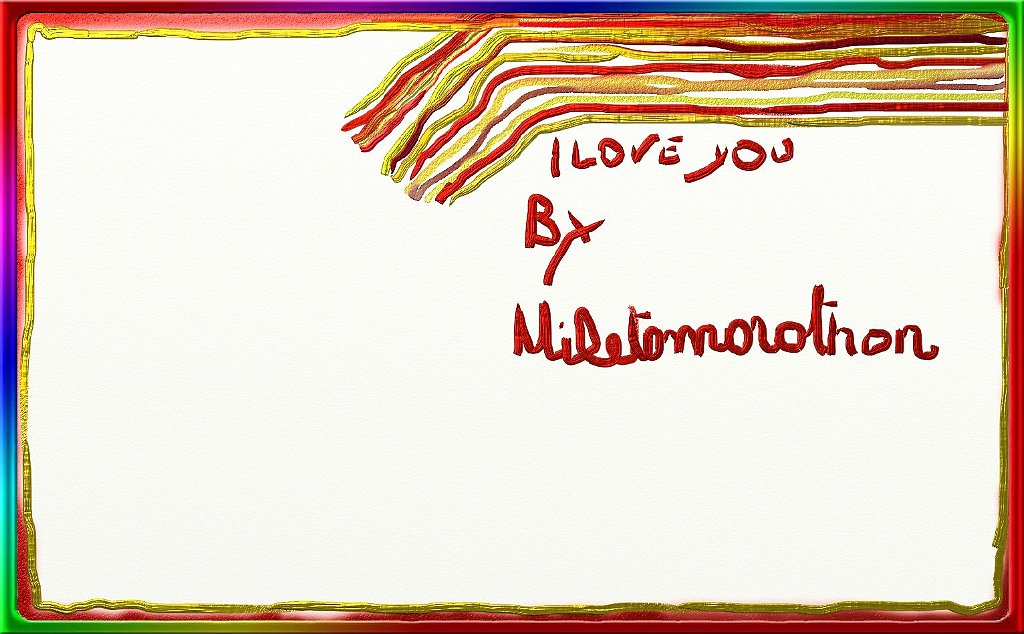 I LOVE YOU
By
Miletomorothon